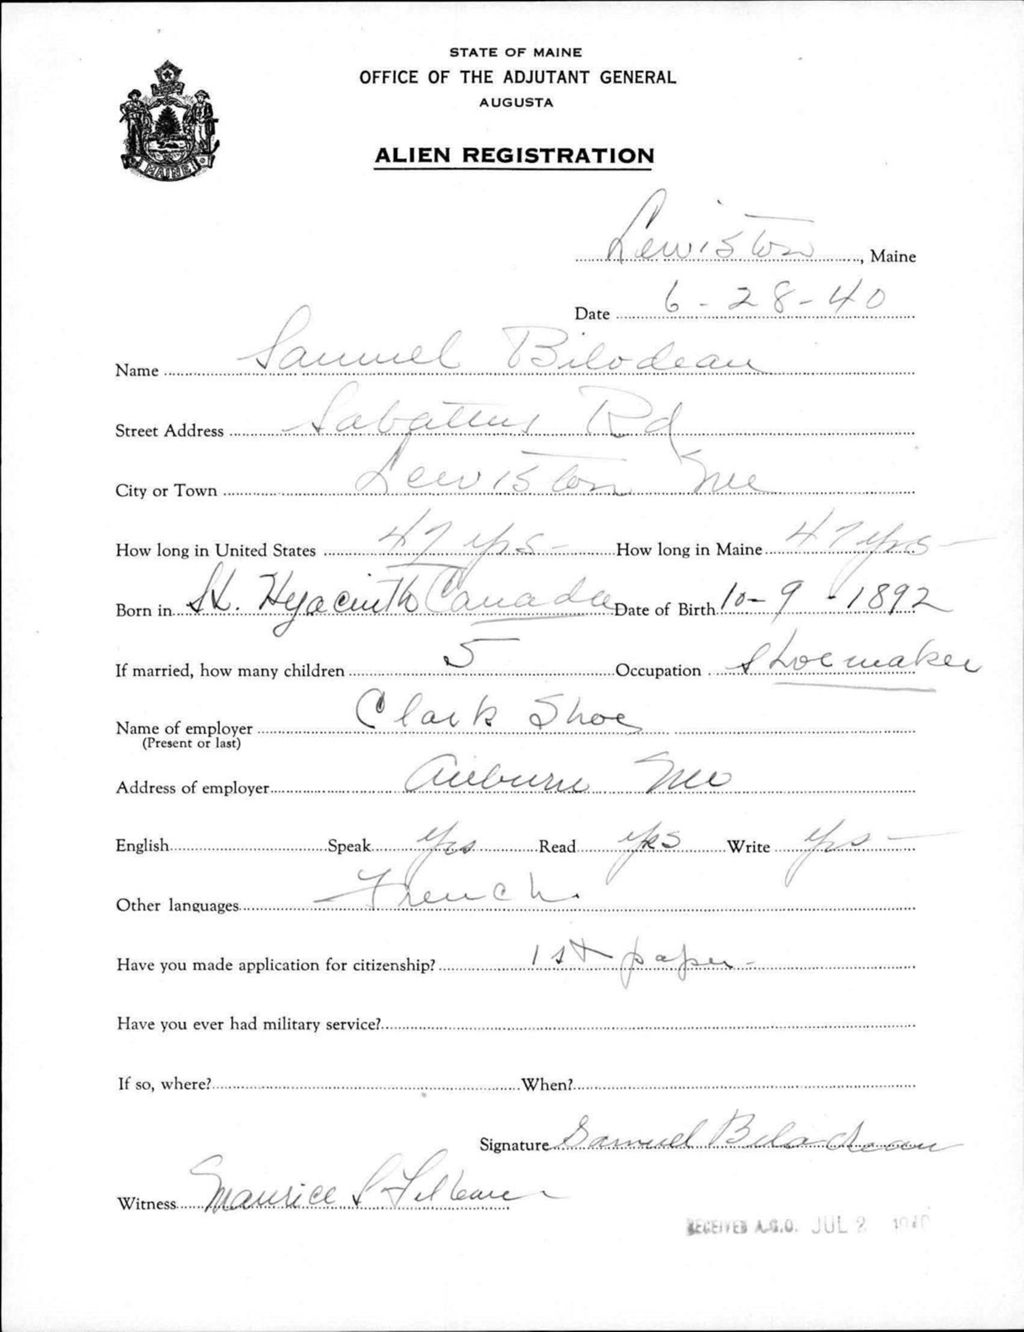 STATE OF MAINE
OFFICE OF THE ADJUTANT GENERAL
AUGUSTA
ALIEN REGISTRATION
MAINE
Lewiston, Maine
Date 6-28-40
Name Samuel Bilodeau
Street Address Sabattus Rd
City or Town Lewiston Me
How long in United States 47 yrs - How long in Maine 47 yrs -
Born in St. Hyacinth Canada Date of Birth 10-9-1892
If married, how many children 5 Occupation Shoemaker
Name of employer Clark Shoe
(Present or last)
Address of employer Auburn Me
English Speak yes Read yes Write yes -
Other languages French.
Have you made application for citizenship? 1st paper -
Have you ever had military service?
If so, where? When?
Signature Samuel Bilodeau
Witness Maurice
RECEIVED A.G.O. JUL 2 1940